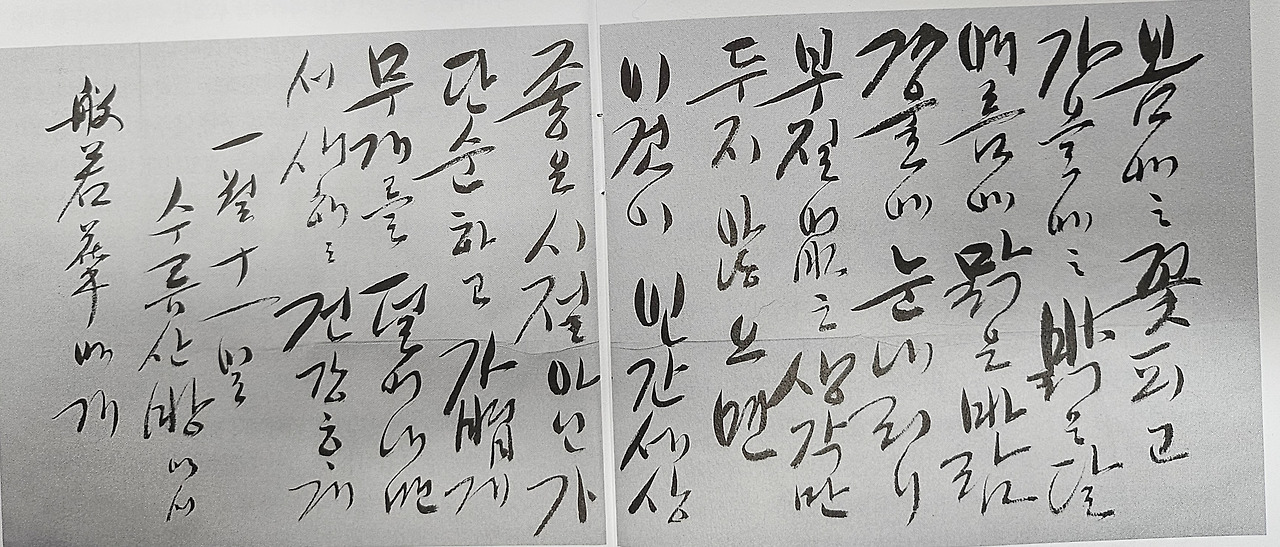 봄에는 꽃피고
가을에는 밝은 달
여름에 맑은 바람
겨울에 눈내리니
부질없는 생각만
두지 않으면
이것이 인간세상
좋은시절 아닌가
단순하고 가볍게
무게를 덜어내면
서 새해는 건강하게
一월十一일
수류산방에서
般若華에게